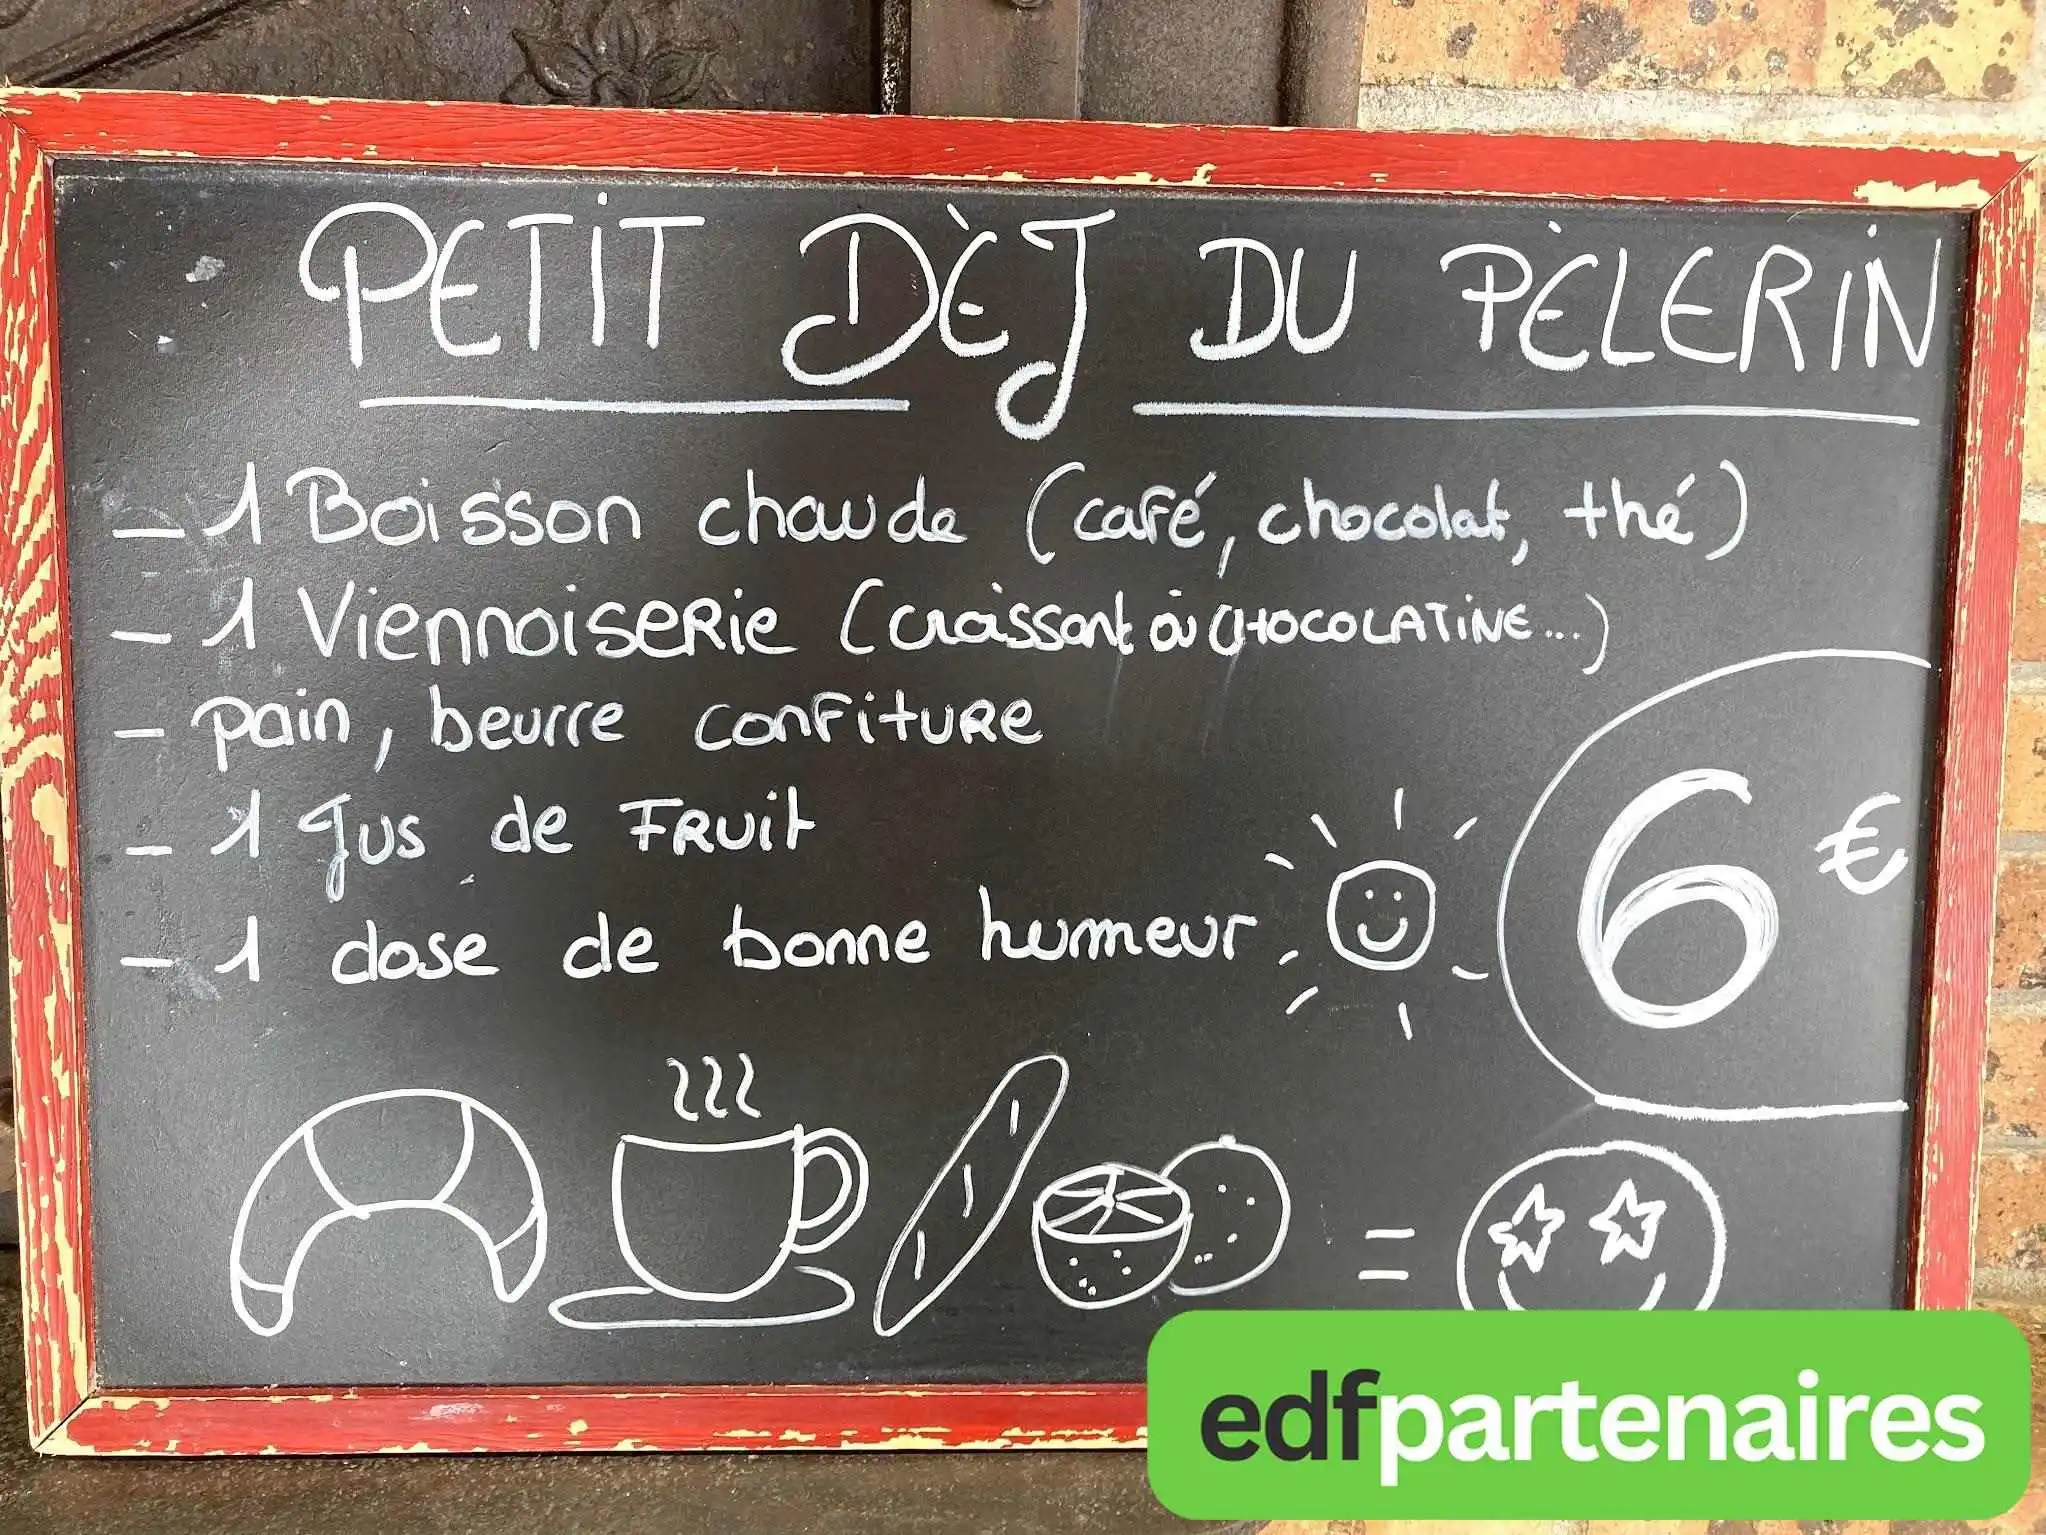 PETIT DÈJ DU PÈLERIN
- 1 Boisson chaude (café, chocolat, thé)
- 1 Viennoiserie (croissant ou CHOCOLATINE...)
- pain, beurre confiture
- 1 Jus de FRUit
- 1 dose de bonne humeur
6 €
=
edfpartenaires